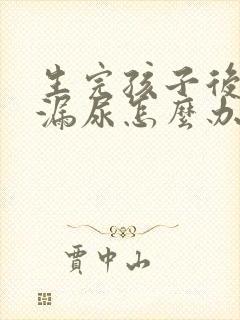 生完孩子後
漏尿怎麼办
賈中山